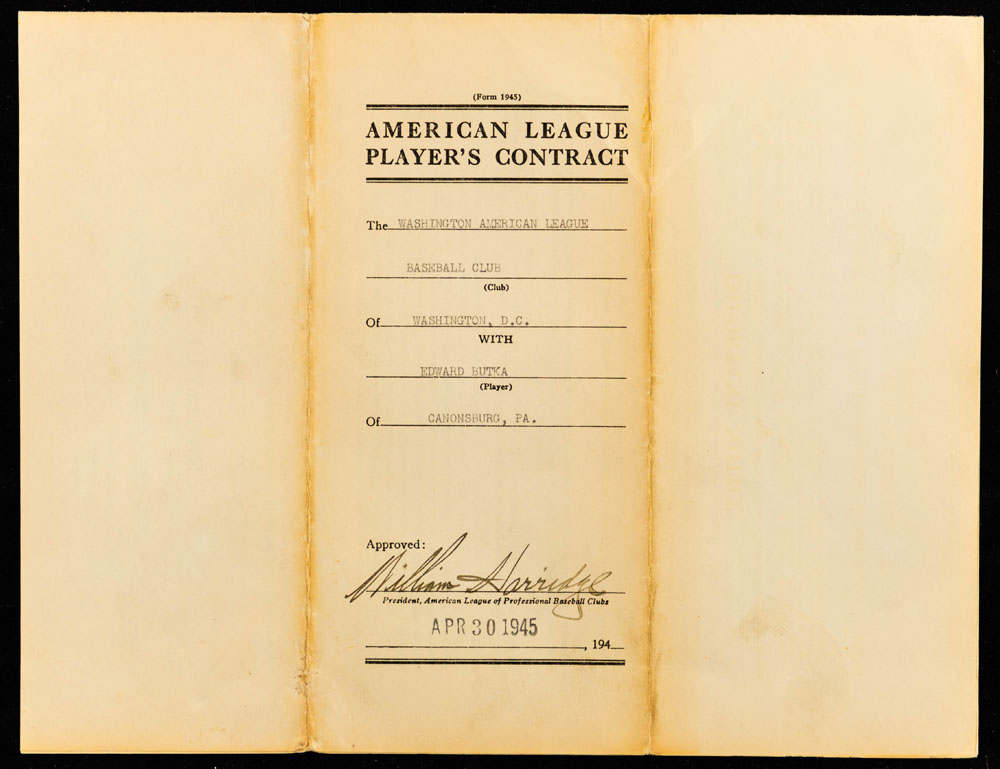 (Form 1945)
AMERICAN LEAGUE
PLAYER'S CONTRACT
The WASHINGTON AMERICAN LEAGUE
BASEBALL CLUB
(Club)
Of WASHINGTON, D.C.
WITH
EDWARD BUTKA
(Player)
Of CANONSBURG, PA.
Approved:
William Harridge
President, American League of Professional Baseball Clubs
APR 30 1945
, 194